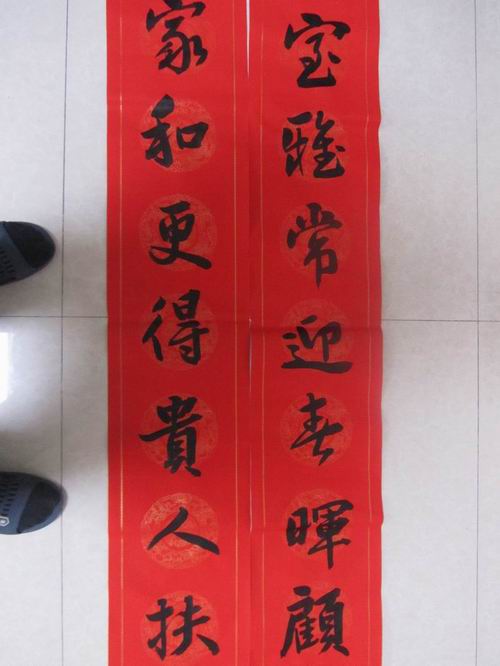 室雅常迎春暉顧
家和更得貴人扶